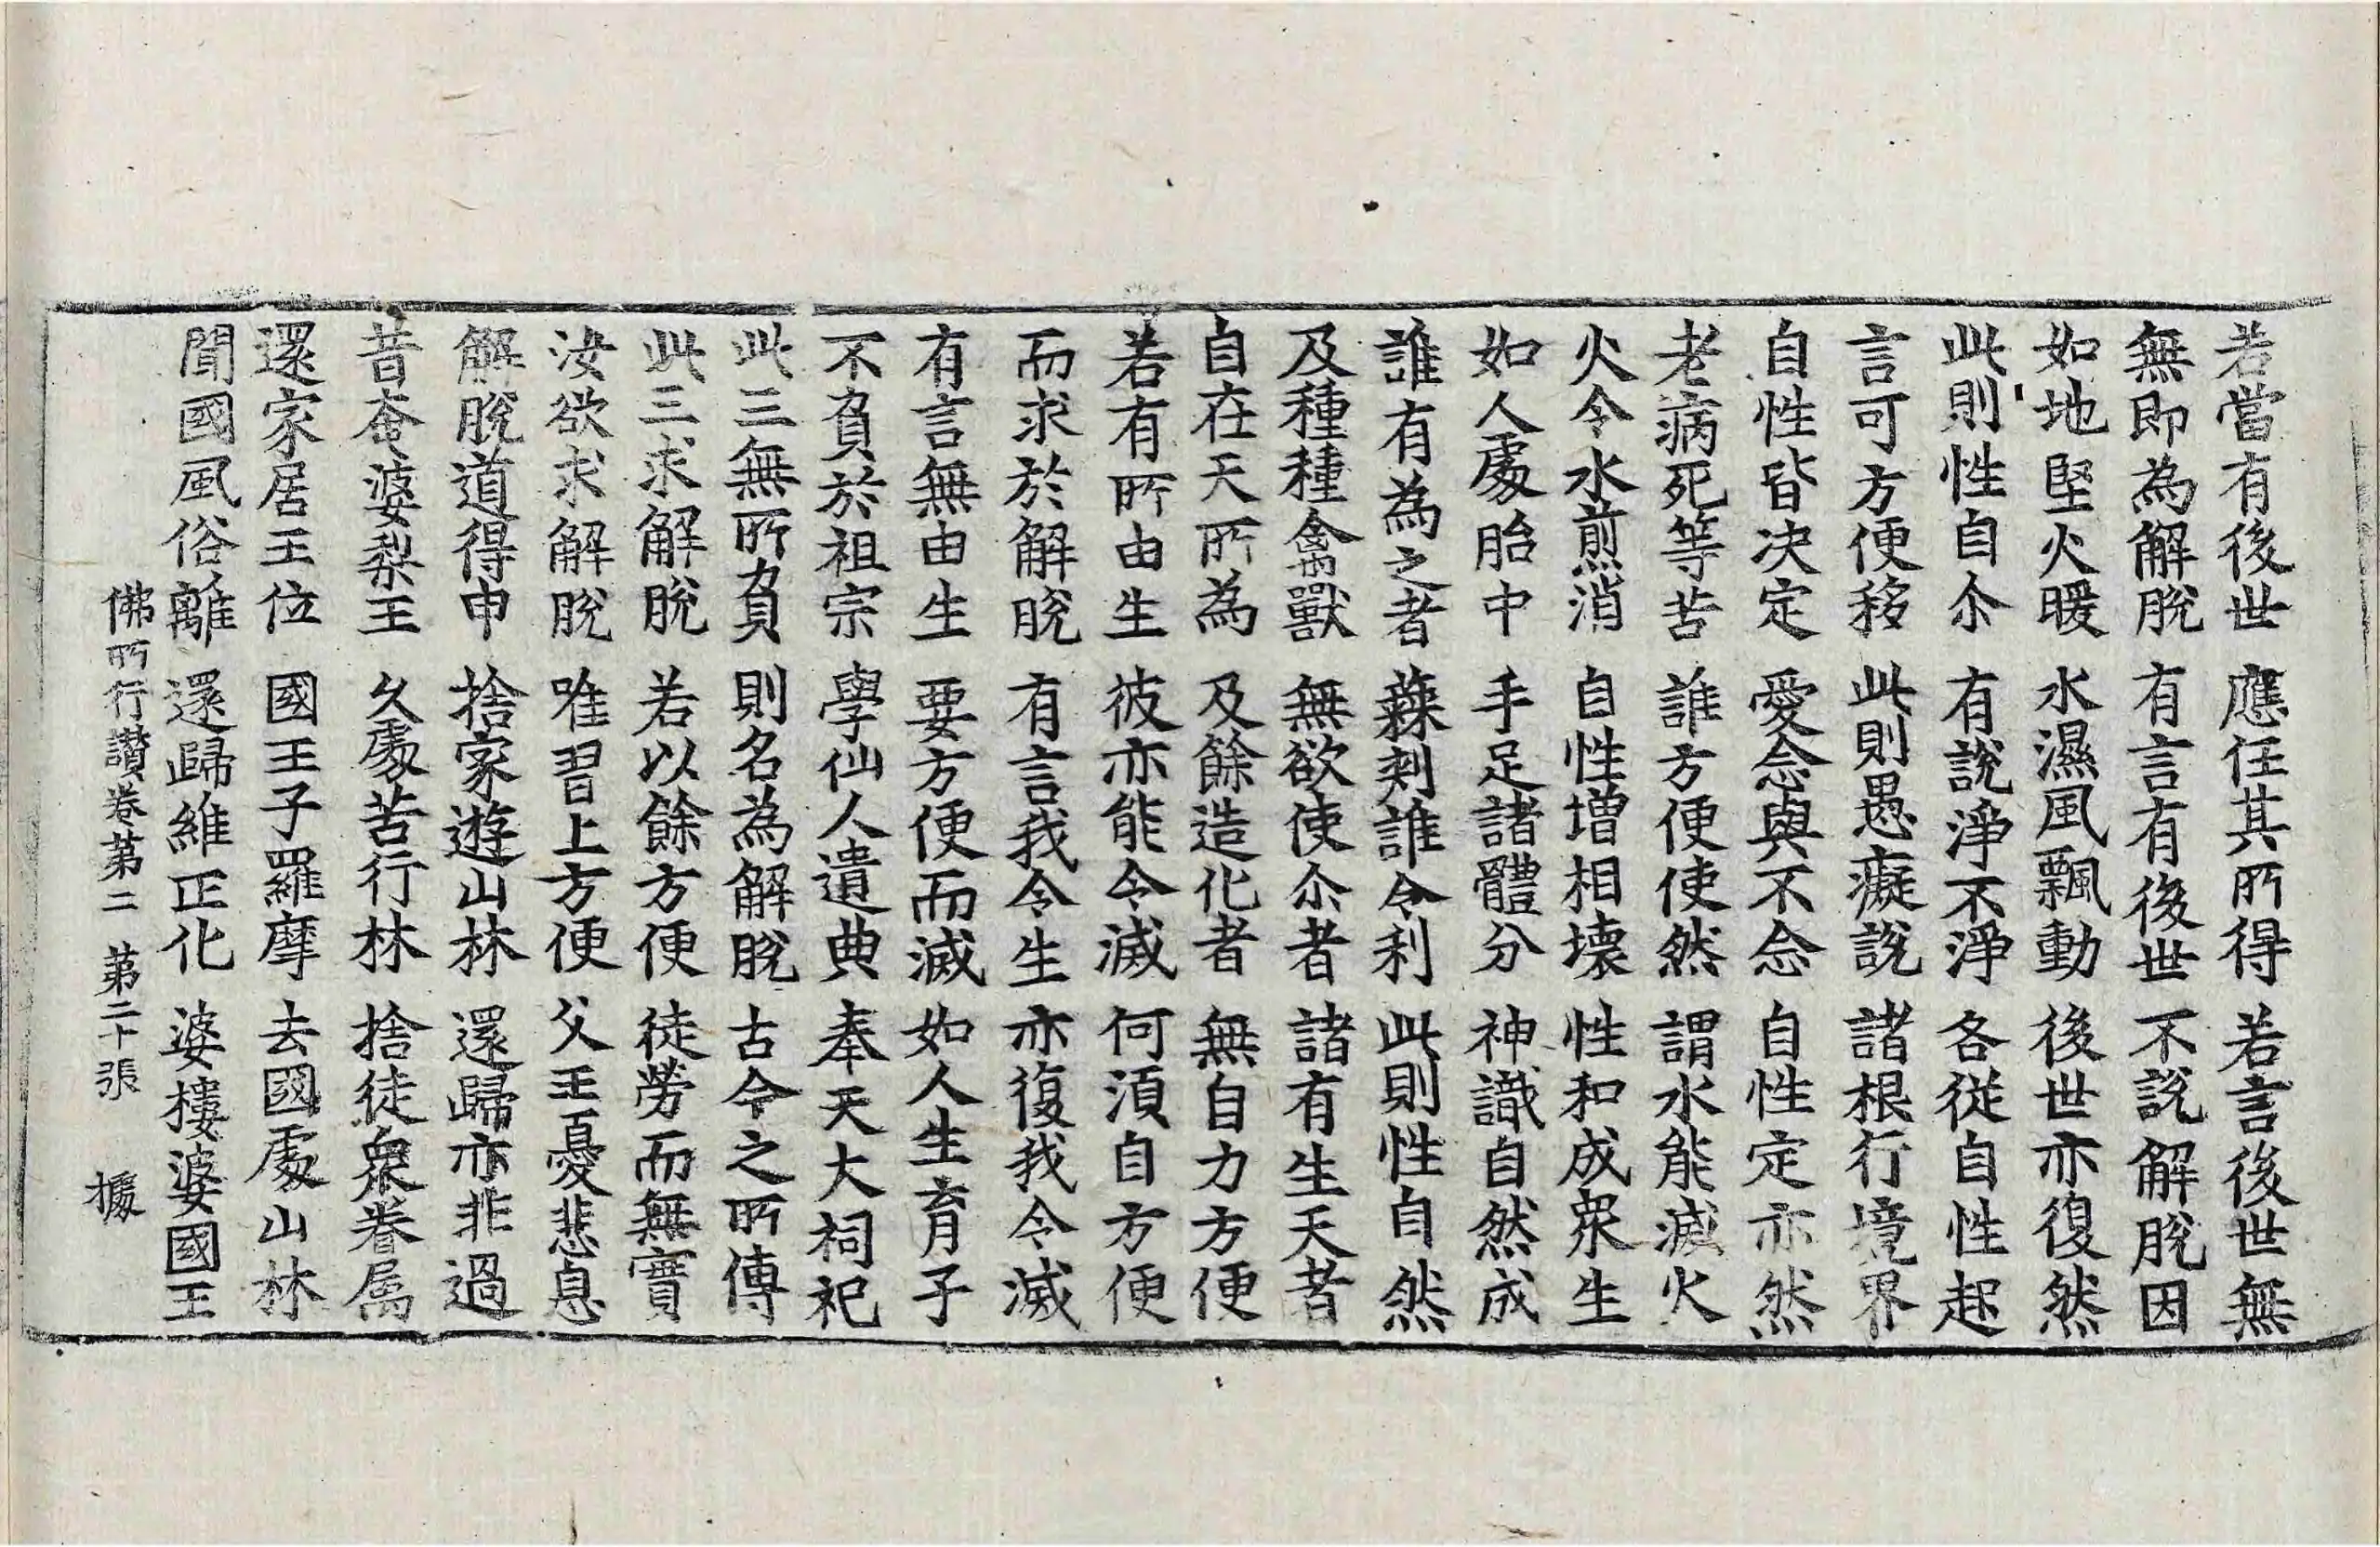 若當有後世　應任其所得　若言後世無
無即為解脫　有言有後世　不說解脫因
如地堅火暖　水濕風飄動　後世亦復然
此則性自尒　有說淨不淨　各従自性起
言可方便移　此則愚癡說　諸根行境界
自性皆决定　愛念與不念　自性定亦然
老病死等苦　誰方便使然　謂水能滅火
火令水煎消　自性增相壞　性和成衆生
如人處胎中　手足諸體分　神識自然成
誰有為之者　蕀刺誰令利　此則性自然
及種種禽獸　無欲使尒者　諸有生天者
自在天所為　及餘造化者　無自力方便
若有所由生　彼亦能令滅　何湏自方便
而求於解脫　有言我令生　亦復我令滅
有言無由生　要方便而滅　如人生育子
不負於祖宗　學仙人遺典　奉天大祠祀
此三無所負　則名為解脫　古今之所傳
此三求解脫　若以餘方便　徒勞而無實
汝欲求解脫　唯習上方便　父王憂悲息
解脫道得申　捨家遊山林　還歸亦非過
昔奄婆梨王　久處苦行林　捨徒衆眷屬
還家居王位　國王子羅摩　去國處山林
聞國風俗離　還歸維正化　婆樓婆國王
佛所行讃卷第二　第二十張　據